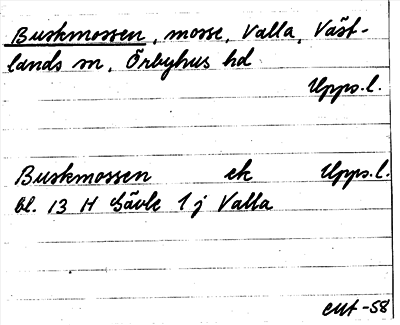 Buskmossen, mosse, Valla, Väst-
lands sn, Örbyhus hd
Upps.l.
Buskmossen ek Upps.l.
bl. 13 H Gävle 1 j Valla
EHT -58